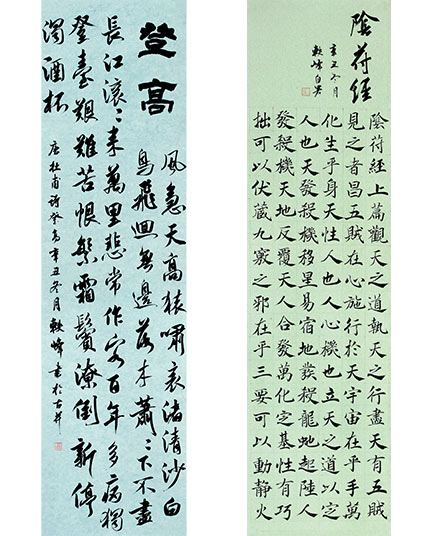 登高
風急天高猿嘯哀渚清沙白
鳥飛迴無邊落木蕭〻下不盡
長江滾〻来萬里悲常作客百年多病獨
登臺艱難苦恨繁霜鬢潦倒新停
濁酒杯
唐杜甫詩登高辛丑冬月軼峰書於古
陰符經
辛丑冬月
軼峰
陰符經上篇觀天之道執天之行盡天有五賊
見之者昌五賊在心施行於天宇宙在乎手萬
化生乎身天性人也人心機也立天之道以定
人也天發殺機移星易宿地發殺龍蛇起陸人
發殺機天地反覆天人合發萬化定基性有巧
拙可以伏藏九竅之邪在乎三要可以動靜火